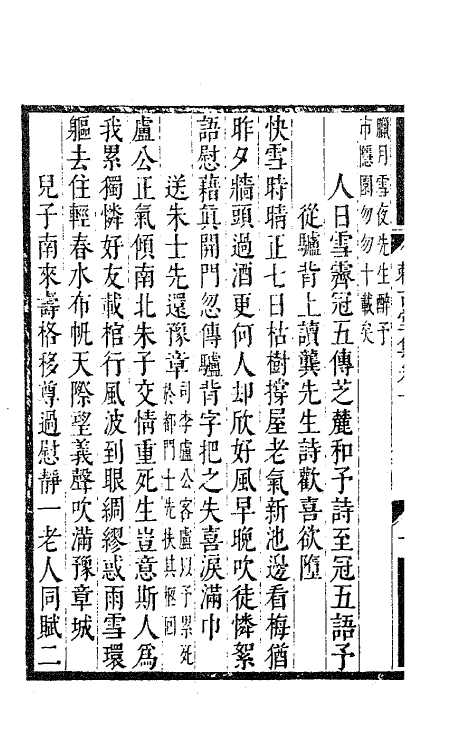 臘月雪夜先生醉予
市隱園匆匆十載矣
人日雪霽冠五傳芝麓和予詩至冠五語予
從驢背上讀龔先生詩歡喜欲墮
快雪時晴正七日枯樹撐屋老氣新池邊看梅猶
昨夕牆頭過酒更何人却欣好風早晚吹徒憐絮
語慰藉眞開門忽傳驢背字把之失喜淚滿巾
送朱士先還豫章司李盧公客盧以予累死
於都門士先扶其櫬回
盧公正氣傾南北朱子交情重死生豈意斯人爲
我累獨憐好友載棺行風波到眼綢繆惑雨雪環
軀去住輕春水布帆天際望義聲吹滿豫章城
兒子南來壽格移尊過慰靜一老人同賦二